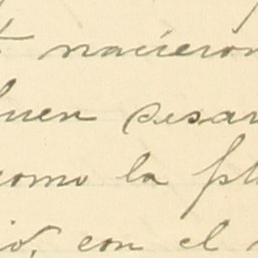 nacieron
buen desar
como la pl
con el